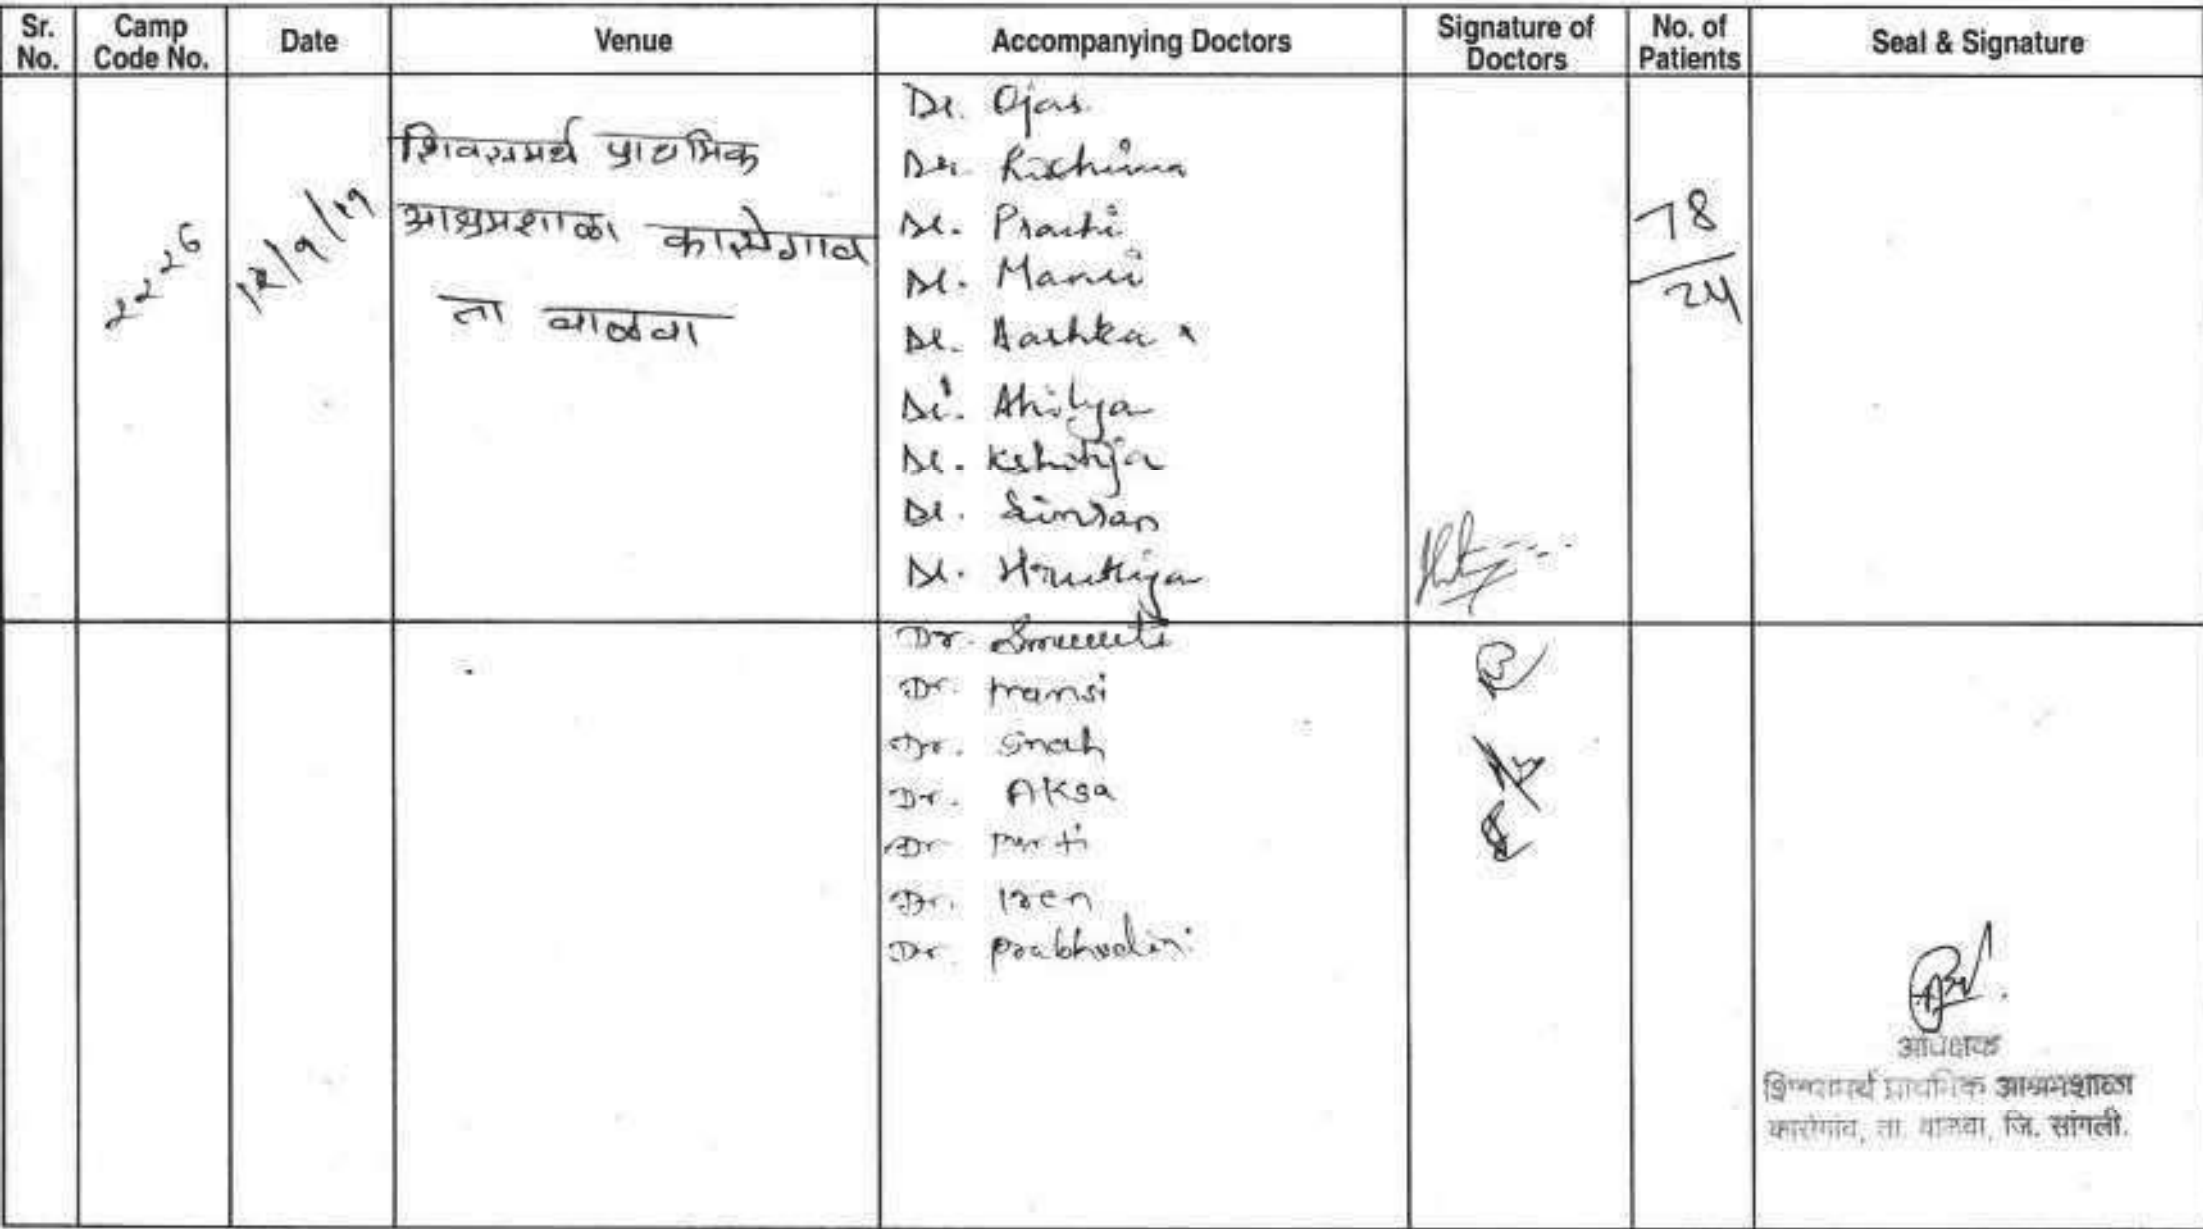 Sr. No.
Camp Code No.
Date
Venue
Accompanying Doctors
Signature of Doctors
No. of Patients
Seal & Signature
2226
12/9/19
शिवसमर्थ प्राथमिक
आश्रमशाळा कासेगाव
ता वाळवा
Dr. Ojas
Dr. Richima
Dr. Prachi
Dr. Mansi
Dr. Aashka
Dr. Ahilya
Dr. Kshitija
Dr. Simran
Dr. Hrutuja
78
24
Dr.
Dr. mansi
Dr. Sneh
Dr. Aksa
Dr
Dr. Iren
Dr. Prabhodini
अधिक्षक
शिवसमर्थ प्राथमिक आश्रमशाळा
कासेगांव, ता. वाळवा, जि. सांगली.